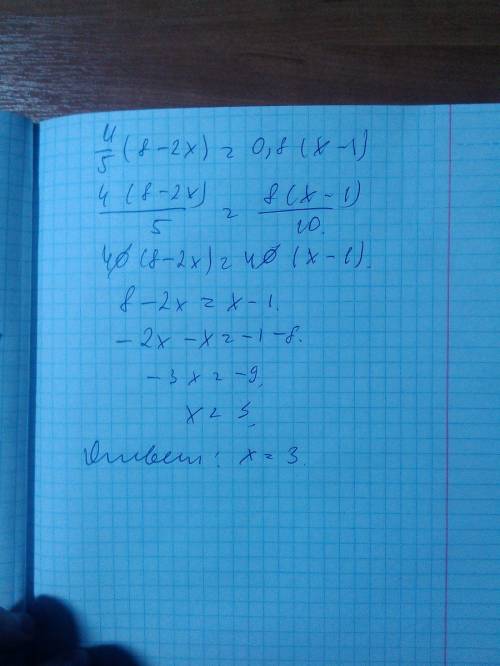 4/5 (8-2x) = 0,8 (x-1)
4 (8-2x)/5 = 8 (x-1)/10.
40 (8-2x) = 40 (x-1).
8-2x = x-1.
-2x -x = -1-8.
-3x = -9.
x = 3.
Ответ: x = 3.